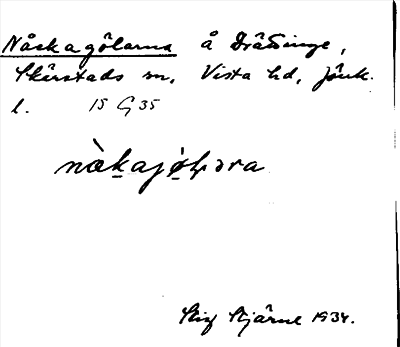 Nåskagölarna å Drättinge,
Skärstads sn, Vista hd, Jönk.
l. 15 G 35
nò̀kajǿḷəra
Stig Stjärne 1934.